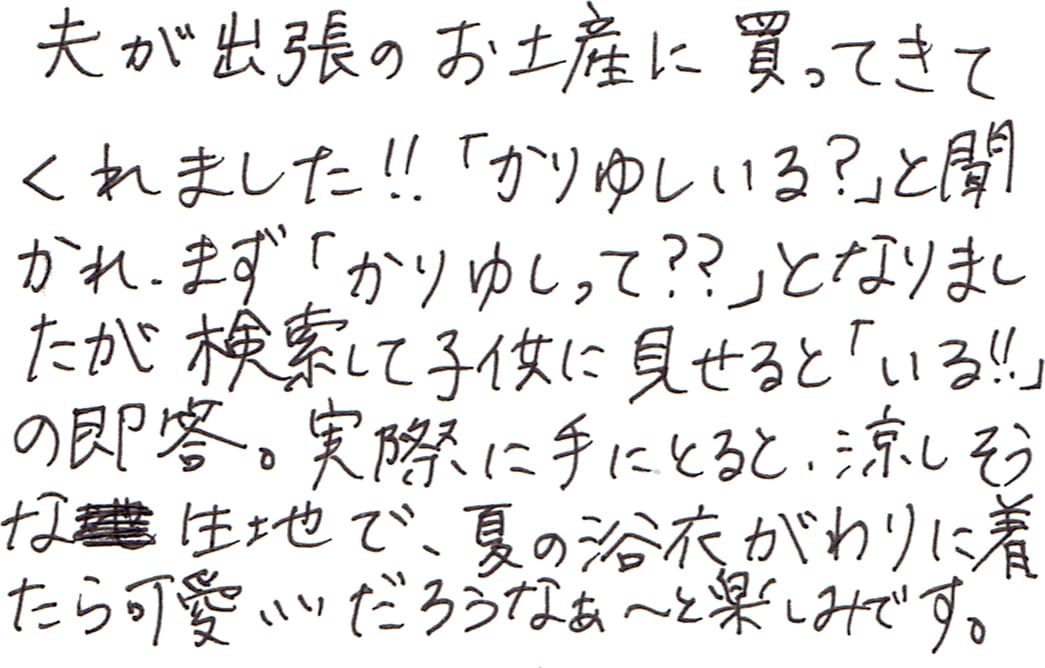 夫が出張のお土産に買ってきて
くれました!!「かりゆしいる?」と聞
かれ、まず「かりゆしって??」となりまし
たが検索して子供に見せると「いる!!」
の即答。実際に手にとると、涼しそう
な生地で、夏の浴衣がわりに着
たら可愛いいだろうなぁ〜と楽しみです。